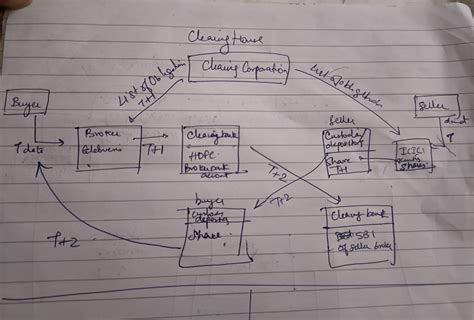 Clearing House
Clearing Corporation
List of Obligation
T+1
List of Obligation
Buyer
T date
Broker
Edelweiss
T+1
Clearing bank
HDFC
Broker bank
account
Seller
Custody
depository
Share
T+1
Seller
T
ICICI
shares
T+2
T+2
T+2
buyer
depository
Share
Clearing bank
SBI
Of seller broker